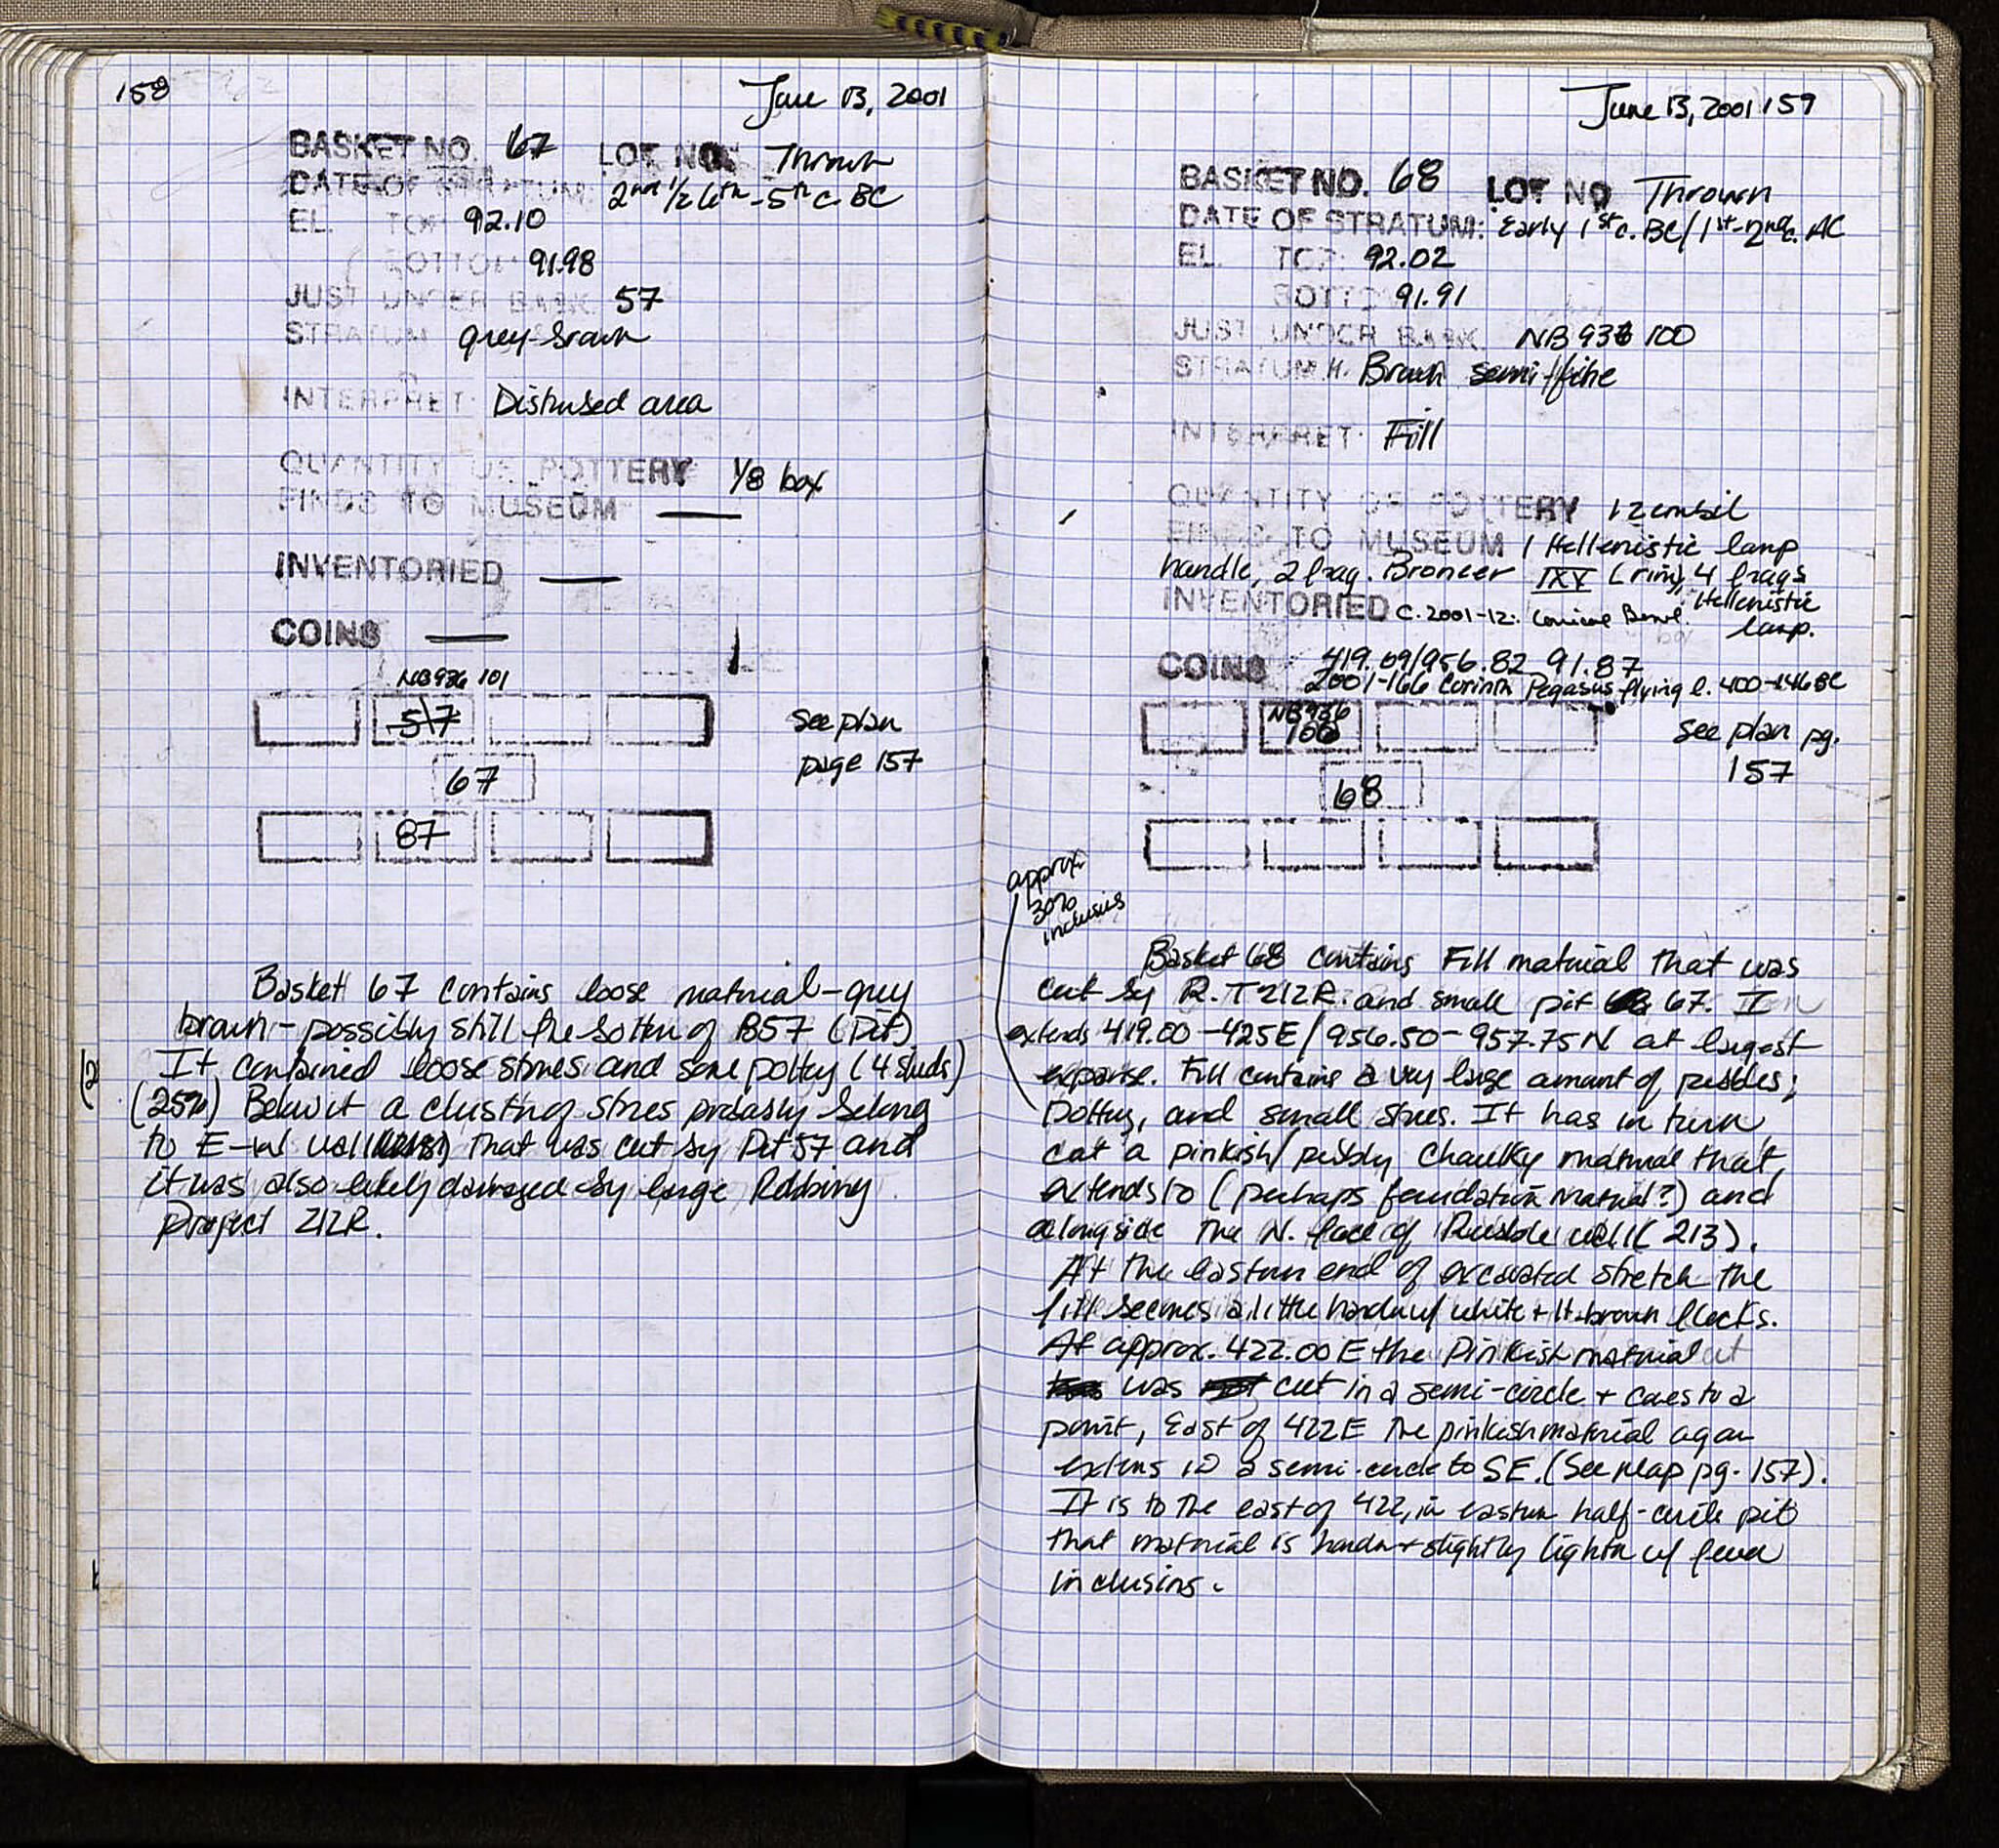 158
June 13, 2001
BASKET NO. 67 LOT NO. Thrown
DATE OF STRATUM: 2nd 1/2 6th - 5th c. BC
EL. TOP 92.10
BOTTOM 91.98
JUST UNDER BASK. 57
STRATUM grey-brown
INTERPRET: Disturbed area
QUANTITY OF POTTERY 1/8 box
FINDS TO MUSEUM —
INVENTORIED —
COINS —
NB936 101
57
see plan
67
page 157
87
Basket 67 contains loose material-grey
brown - possibly still the bottom of B57 (Pit)
It contained loose stones and some pottery (4 sherds)
(25%) Below it a cluster of stones probably belong
to E-W wall that was cut by Pit 57 and
it was also likely damaged by large Robbing
Project 212R.
June 13, 2001 159
BASKET NO. 68 LOT NO Thrown
DATE OF STRATUM: Early 1st c. BC/1st-2nd c. AC
EL. TOP: 92.02
BOTTO 91.91
JUST UNDER BASK. NB 936 100
STRATUM. Brown semi-fine
INTERPRET: Fill
QUANTITY OF POTTERY 1 zembil
FINDS TO MUSEUM 1 Hellenistic lamp
handle, 2 frag. Broneer IXV (rim), 4 frags
Hellenistic
INVENTORIED C.2001-12: Conical Bowl.
lamp.
COINS 419.69/956.82 91.87
2001-166 Corinth Pegasus flying l. 400-146 BC
NB936
100
see plan pg.
157
68
approx
30%
inclusions
Basket 68 contains Fill material that was
cut by R.T 212R. and small pit 67. I
extends 419.00-425E/956.50-957.75N at largest
expanse. Fill contains a very large amount of pebbles;
Pottery, and small stones. It has in turn
cut a pinkish/pebbly chaulky material that
extends to (perhaps foundation material?) and
alongside the N. face of Rubble wall (213).
At the eastern end of excavated stretch the
fill seemes a little harder w/ white + lt. brown flecks.
At approx. 422.00 E the Pinkish material
was cut in a semi-circle + comes to a
point, East of 422E the pinkish material again
extens in a semi-circle to SE. (See Map pg. 157).
It is to the east of 422, in eastern half-circle pit
that material is harder + slightly lighter w/ fewer
inclusions.